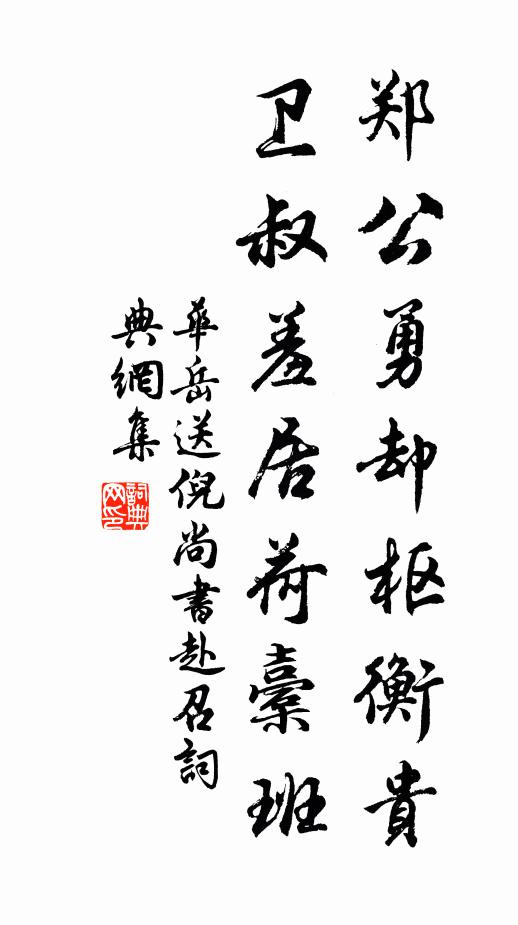 郑公勇却枢衡貴
卫叔羞居荷橐班
華岳送倪尚書赴召詞
典網集
詞典网印